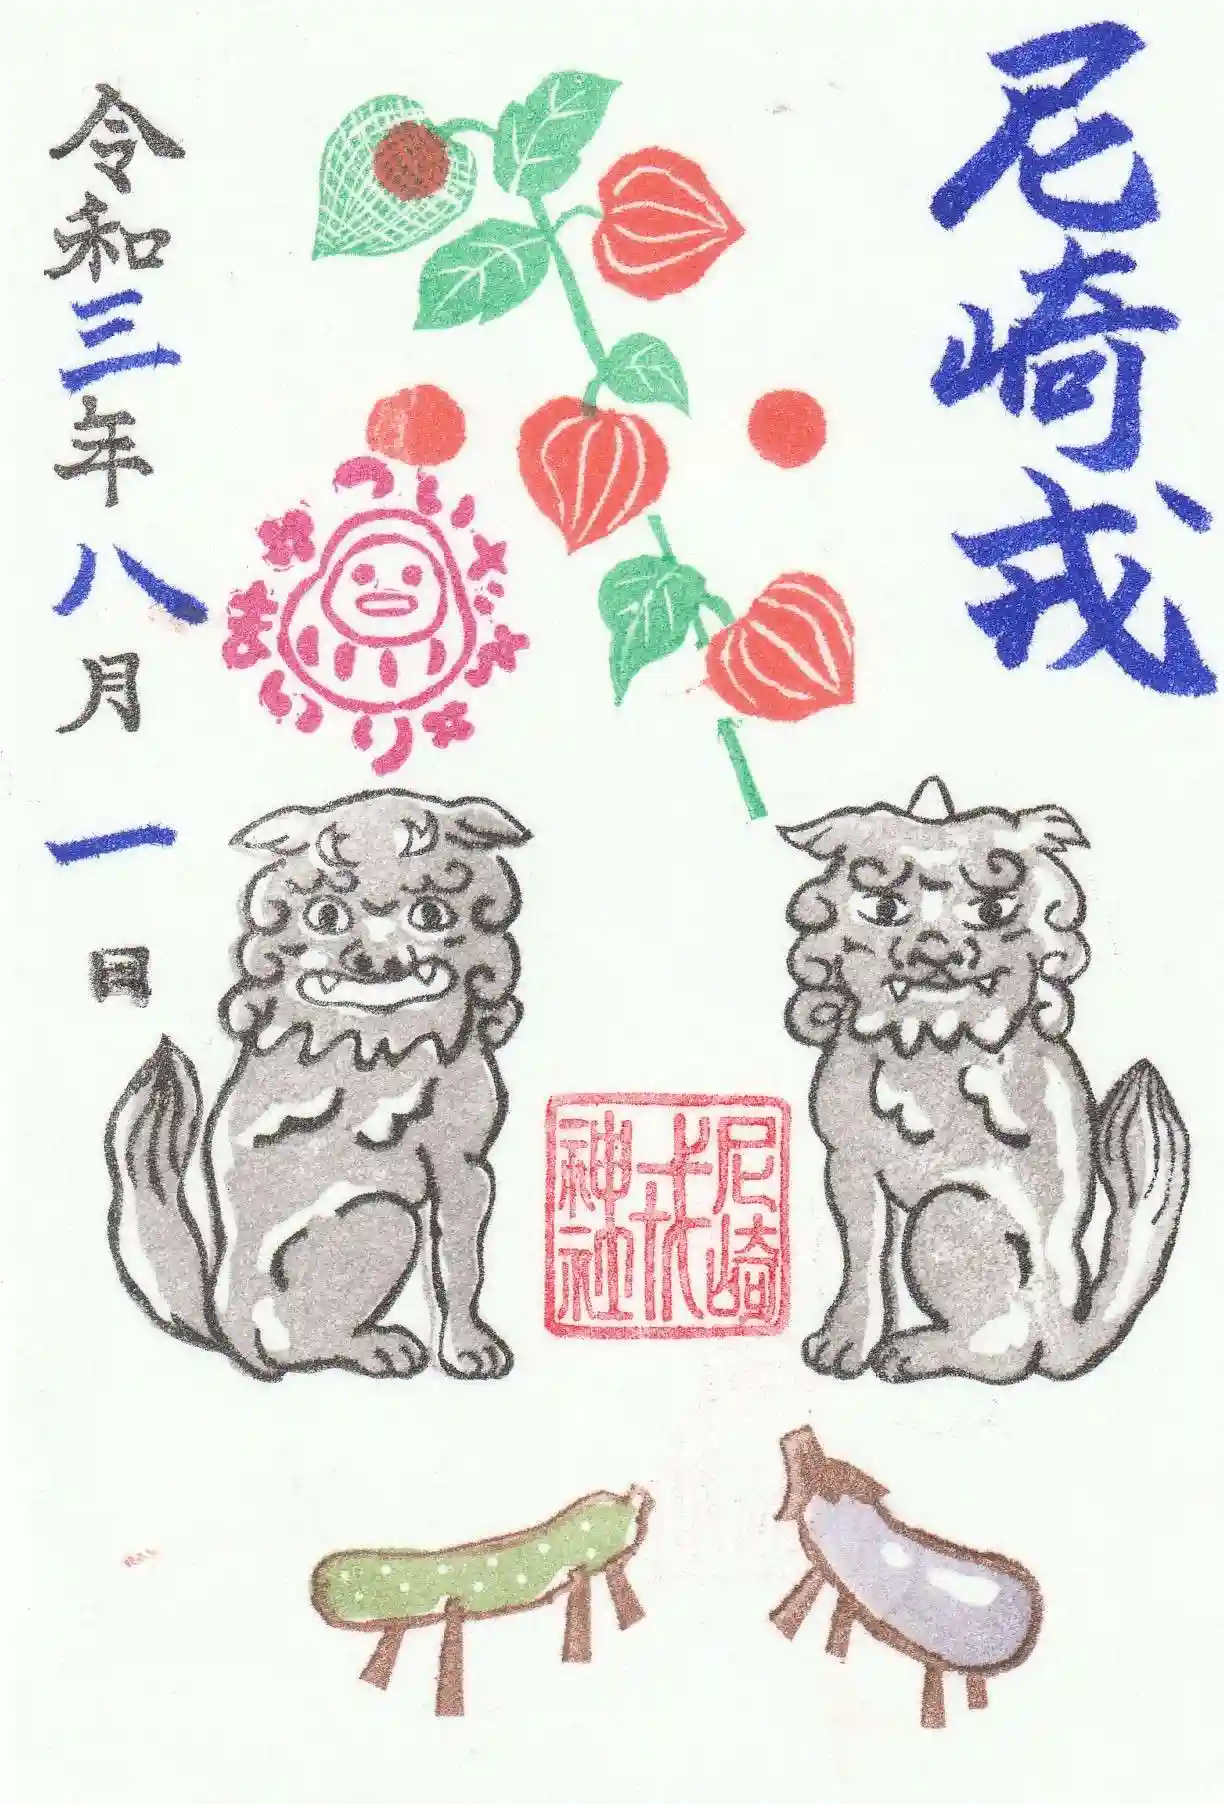 尼崎戎
令和三年八月一日
ついたちまいり
尼崎
戎
神社